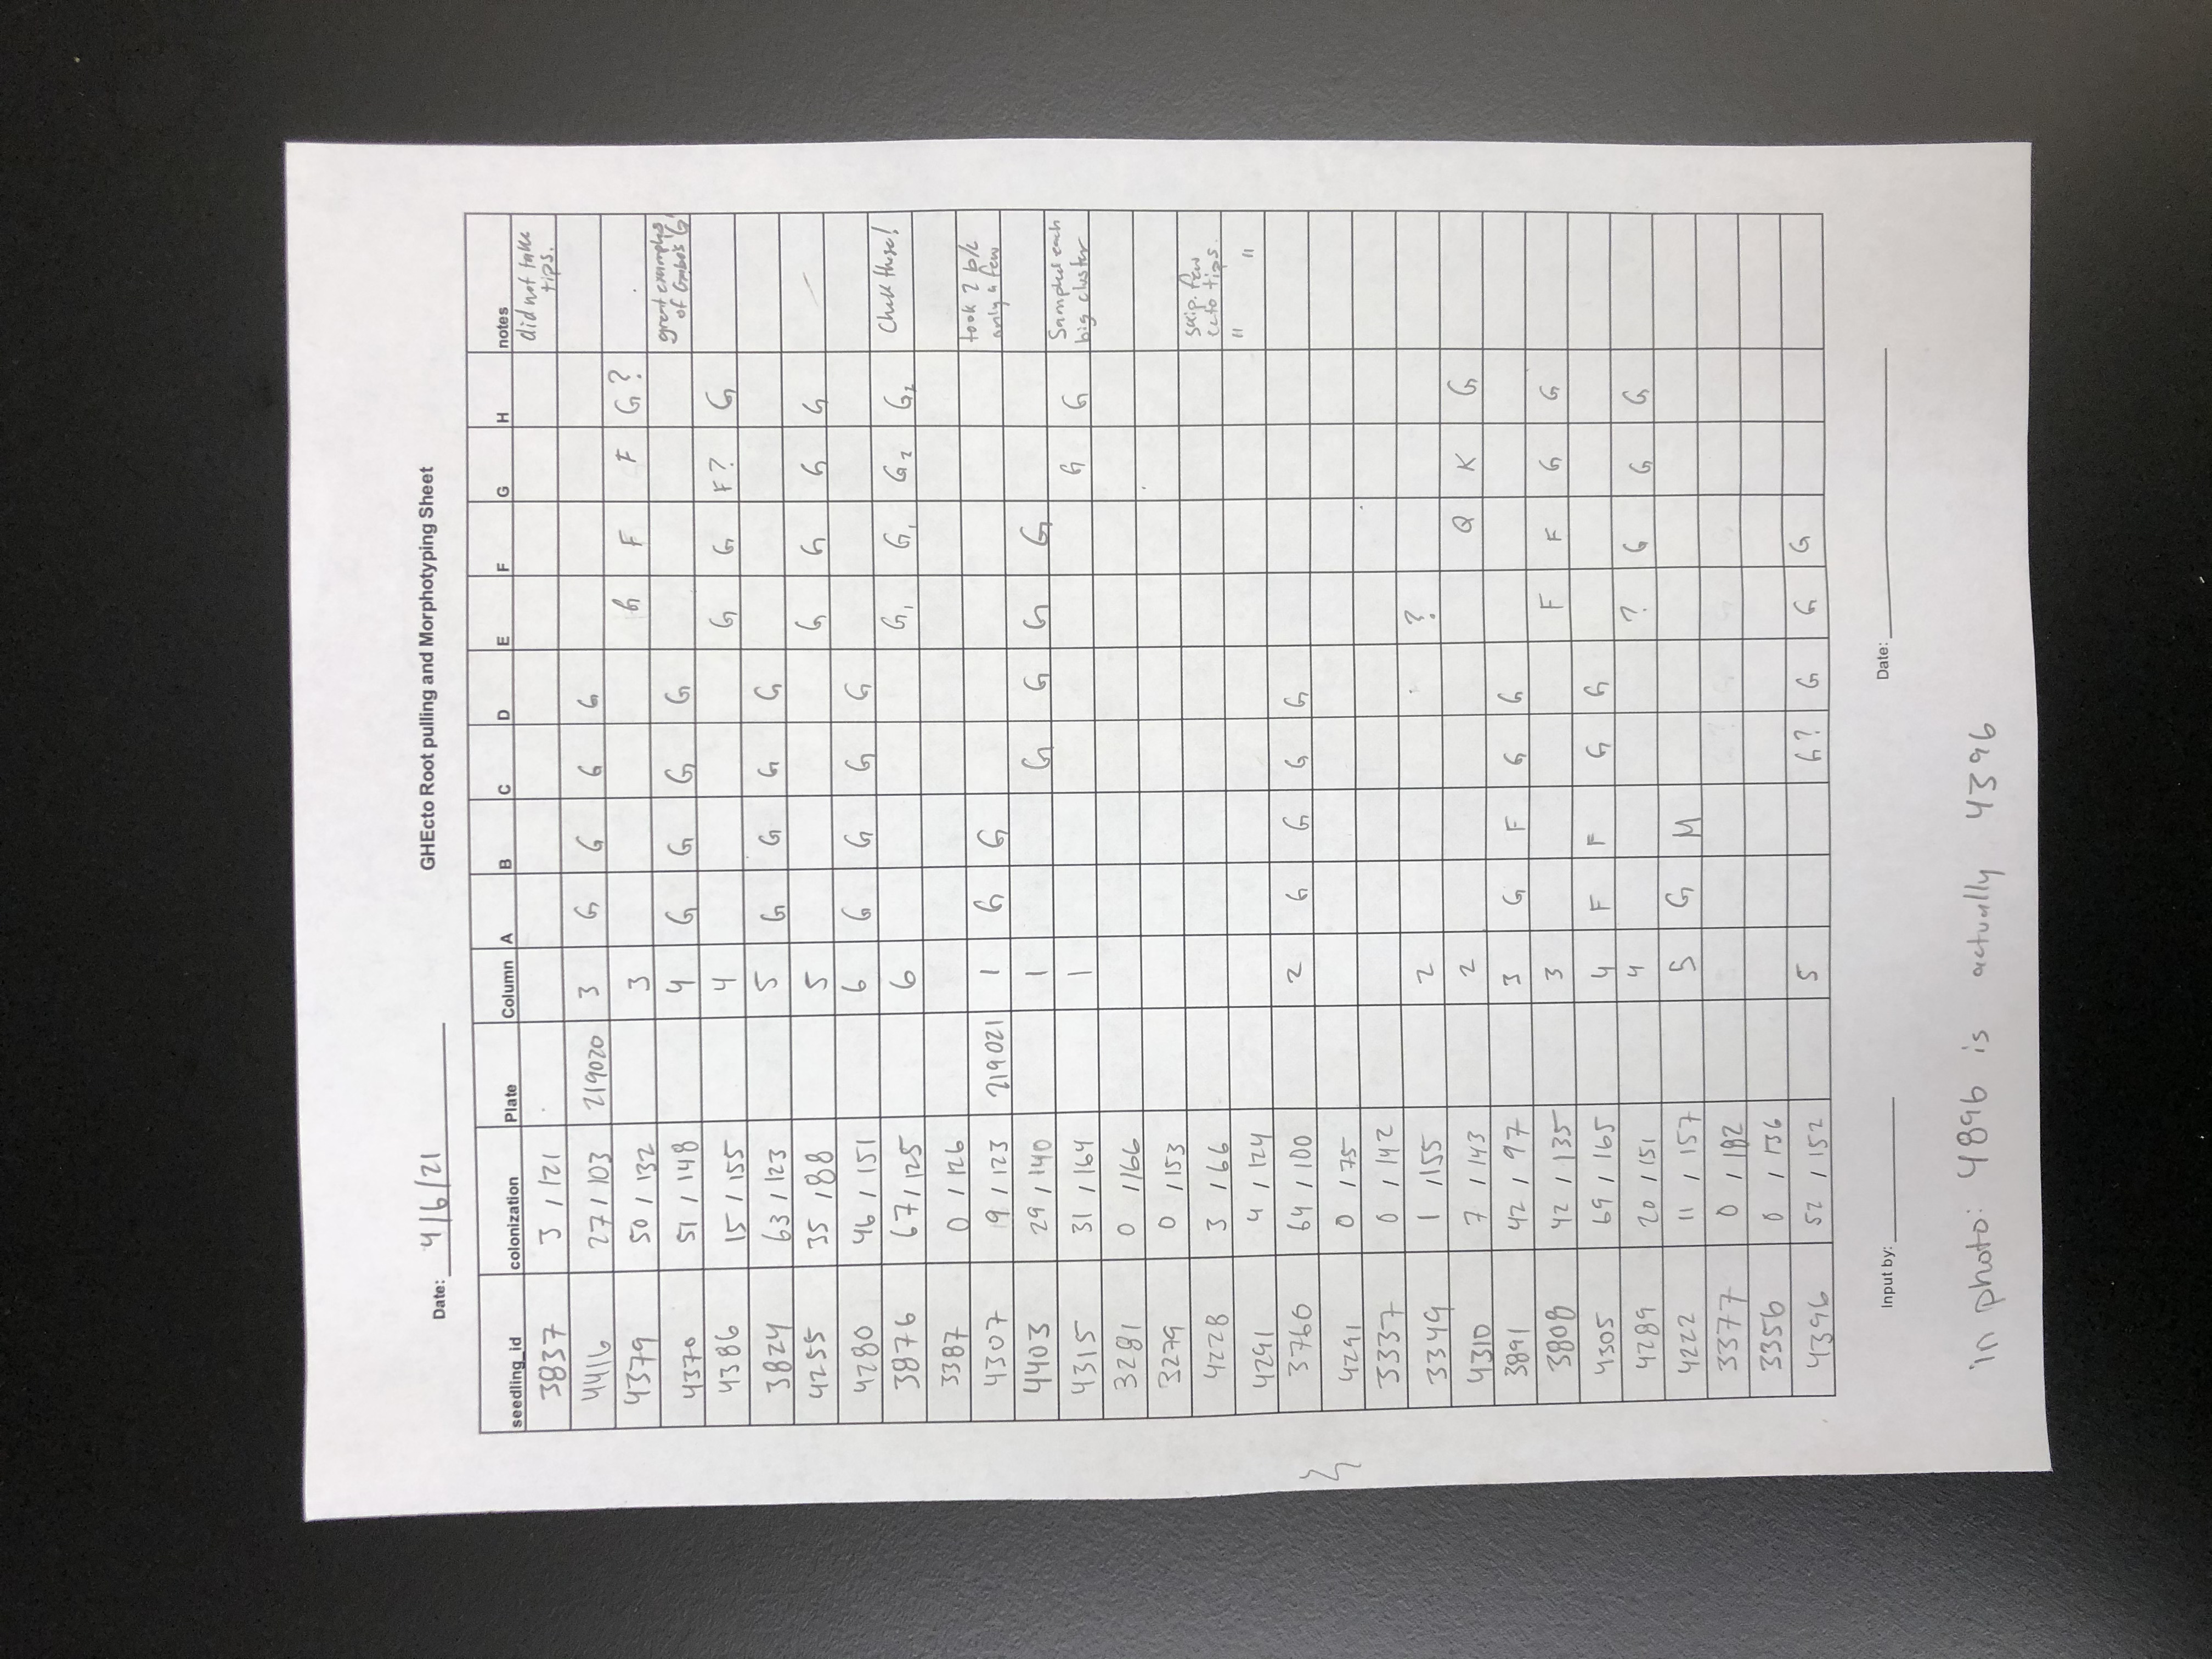 Date: 4/6/21 GHEcto Root pulling and Morphotyping Sheet
seedling_id colonization Plate Column A B C D E F G H notes
3837 3 / 121 did not take tips.
4416 27 / 103 219020 3 G G G G
4379 50 / 132 3 G F F G?
4370 51 / 148 4 G G G G great examples of Gabo's 'G'
4386 15 / 155 4 G G F? G
3824 63 / 123 5 G G G G
4255 35 / 88 5 G G G G
4280 46 / 151 6 G G G G
3876 67 / 125 6 G1 G1 G2 G2 Check these!
3387 0 / 126
4307 9 / 123 219021 1 G G took 2 b/c only a few
4403 29 / 140 1 G G G G
4315 31 / 164 1 G G Sampled each big cluster
3281 0 / 166
3279 0 / 153
4228 3 / 66 skip. few ecto tips.
4291 4 / 124 " "
3760 64 / 100 2 G G G G
4291 0 / 75
3337 0 / 142
3349 1 / 155 2 ?
4310 7 / 143 2 Q K G
3891 42 / 97 3 G F G G
3808 42 / 135 3 F F G G
4305 69 / 165 4 F F G G
4289 20 / 151 4 ? G G G
4222 11 / 157 5 G M
3377 0 / 182
3356 0 / 136
4396 52 / 152 5 G? G G G
Input by: Date:
in photo: 4896 is actually 4396